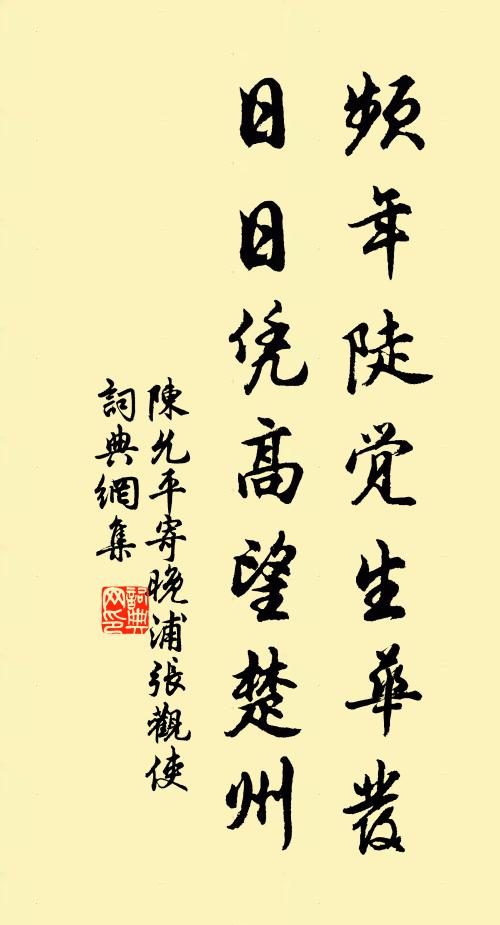 頻年陡觉生華发
日日凭高望楚州
陳允平寄晚浦張觀使
詞典網集
詞典网印